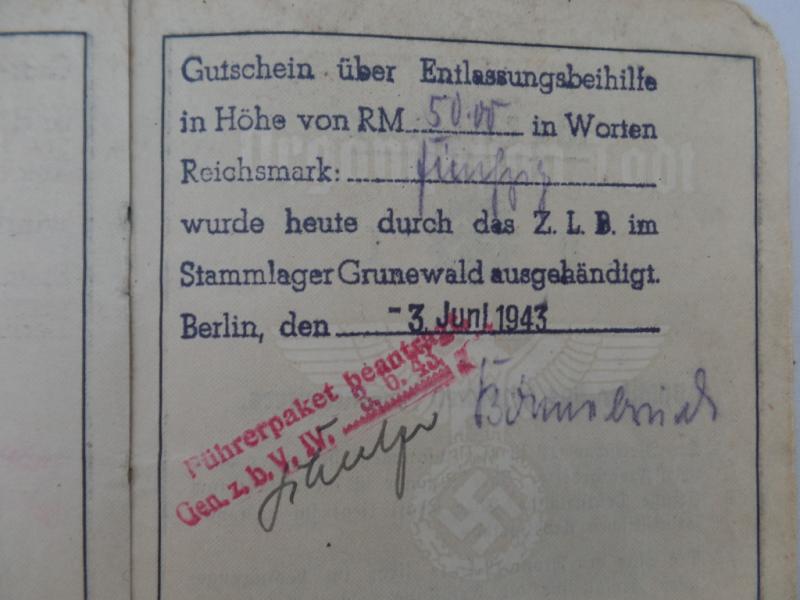 Gutschein über Entlassungsbeihilfe
in Höhe von RM 50.00 in Worten
Reichsmark: fünfzig
wurde heute durch das Z. L. B. im
Stammlager Grunewald ausgehändigt.
Berlin, den -3. Juni 1943
Führerpaket beantragt
Gen. z. b. V. IV. 3. 6. 43.